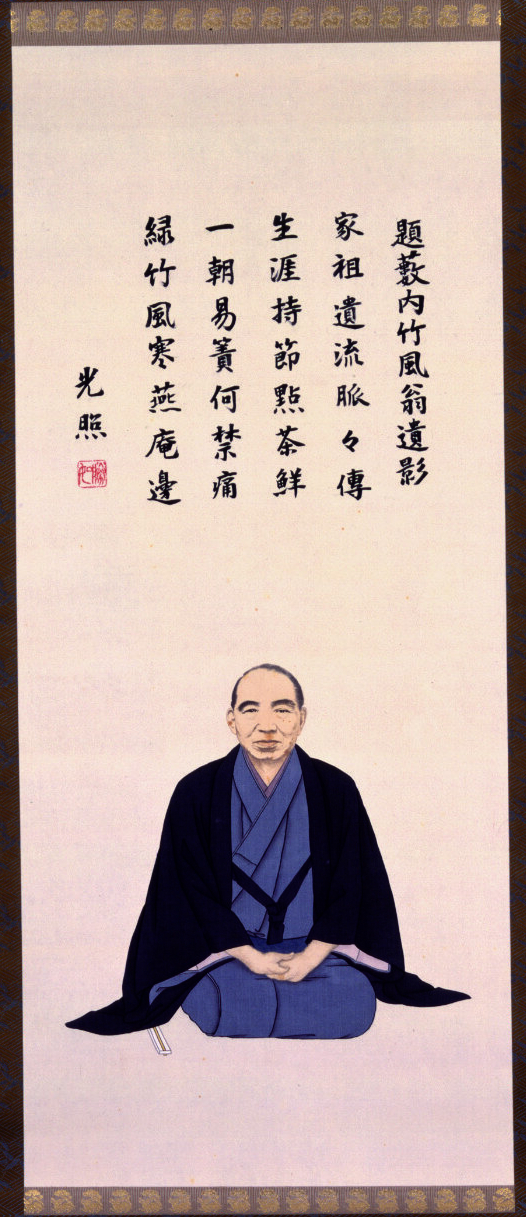 題藪内竹風翁遺影
家祖遺流脈々傳
生涯持節點茶鮮
一朝易簀何禁痛
緑竹風寒燕庵邊
光照